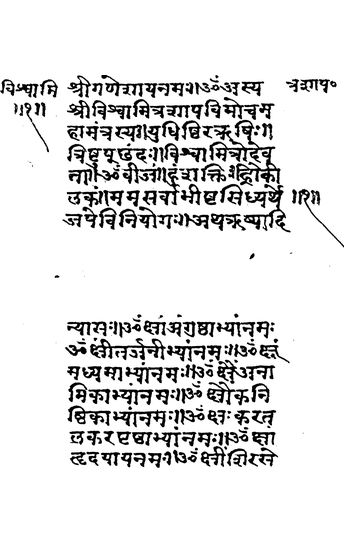 विश्वामि
॥१॥
श्रीगणेशायनमः॥ॐअस्य
त्रशाप०
श्रीविश्वामित्रशापविमोचम
हामंत्रस्य॥युधिष्ठिरऋषिः॥
त्रिष्टुप्छंदः॥विश्वामित्रोदेव
ता॥ॐबीजं॥ शक्तिः॥
॥ममसर्वाभीष्टसिध्यर्थे
॥१॥
जपेविनियोगः॥अथऋष्यादि
न्यासः॥ॐक्षांअंगुष्ठाभ्यांनमः
ॐक्षींतर्जनीभ्यांनमः॥ॐक्षूं
मध्यमाभ्यांनमः॥ॐक्षैंअना
मिकाभ्यांनमः॥ॐक्षौंकनि
ष्ठिकाभ्यांनमः॥ॐक्षःकरत
लकरपृष्ठाभ्यांनमः॥ॐक्षां
हृदयायनमः॥ॐक्षींशिरसे